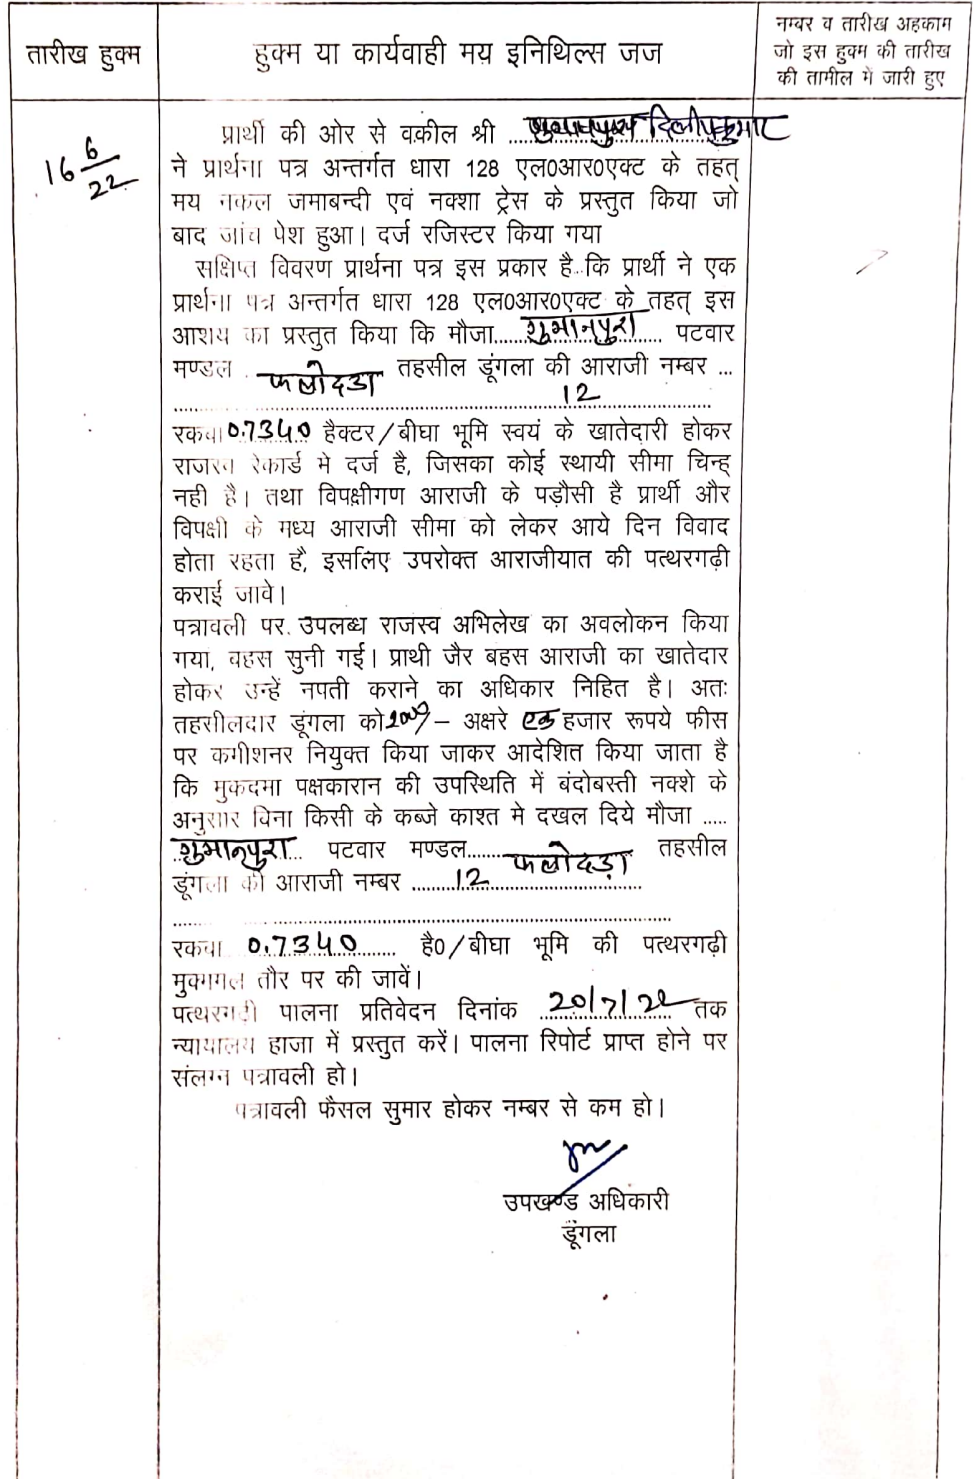 तारीख हुक्म
हुक्म या कार्यवाही मय इनिथिल्स जज
नम्बर व तारीख अहकाम
जो इस हुक्म की तारीख
की तामील में जारी हुए
16 6/22
प्रार्थी की ओर से वकील श्री ... दिलीपकुमार
ने प्रार्थना पत्र अन्तर्गत धारा 128 एल0आर0एक्ट के तहत्
मय नकल जमाबन्दी एवं नक्शा ट्रेस के प्रस्तुत किया जो
बाद जांच पेश हुआ। दर्ज रजिस्टर किया गया
सक्षिप्त विवरण प्रार्थना पत्र इस प्रकार है कि प्रार्थी ने एक
प्रार्थना पत्र अन्तर्गत धारा 128 एल0आर0एक्ट के तहत् इस
आशय का प्रस्तुत किया कि मौजा.....गुमानपुरा..... पटवार
मण्डल . फलोदडा तहसील डूंगला की आराजी नम्बर ...
12
रकबा 0.7340 हैक्टर/बीघा भूमि स्वयं के खातेदारी होकर
राजस्व रेकार्ड मे दर्ज है, जिसका कोई स्थायी सीमा चिन्ह्
नही है। तथा विपक्षीगण आराजी के पड़ौसी है प्रार्थी और
विपक्षी के मध्य आराजी सीमा को लेकर आये दिन विवाद
होता रहता है, इसलिए उपरोक्त आराजीयात की पत्थरगढ़ी
कराई जावे।
पत्रावली पर उपलब्ध राजस्व अभिलेख का अवलोकन किया
गया, वहस सुनी गई। प्राथी जैर बहस आराजी का खातेदार
होकर उन्हें नपती कराने का अधिकार निहित है। अतः
तहसीलदार डूंगला को 1000/- अक्षरे एक हजार रूपये फीस
पर कमीशनर नियुक्त किया जाकर आदेशित किया जाता है
कि मुकदमा पक्षकारान की उपस्थिति में बंदोबस्ती नक्शे के
अनुसार बिना किसी के कब्जे काश्त मे दखल दिये मौजा .....
गुमानपुरा पटवार मण्डल..... फलोदड़ा तहसील
डूंगला की आराजी नम्बर .....12.....
रकबा 0.7340 है0/बीघा भूमि की पत्थरगढ़ी
मुकम्मल तौर पर की जावें।
पत्थरगढी पालना प्रतिवेदन दिनांक 20/7/22 तक
न्यायालय हाजा में प्रस्तुत करें। पालना रिपोर्ट प्राप्त होने पर
संलग्न पत्रावली हो।
पत्रावली फैसल सुमार होकर नम्बर से कम हो।
उपखण्ड अधिकारी
डूंगला